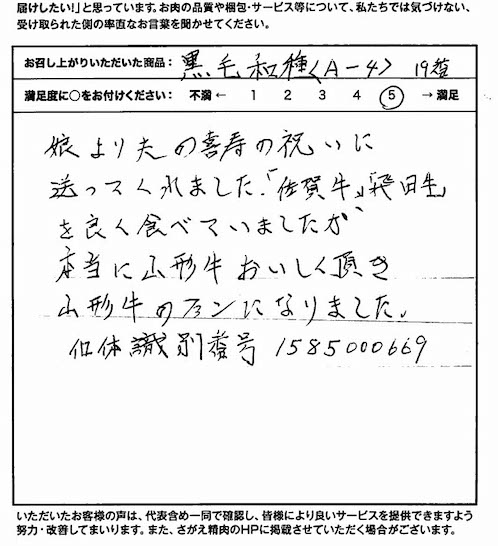 届けしたい！」と思っています。お肉の品質や梱包・サービス等について、私たちでは気づけない、
受け取られた側の率直なお言葉を聞かせてください。
お召し上がりいただいた商品： 黒毛和種〈A-4〉
満足度に○をお付けください： 不満 ← 1 2 3 4 5 → 満足
娘より夫の喜寿の祝いに
送ってくれました。「佐賀牛」「飛田牛」
を良く食べていましたが
本当に山形牛おいしく頂き
山形牛のファンになりました。
個体識別番号 1585000669
いただいたお客様の声は、代表含め一同で確認し、皆様により良いサービスを提供できますよう
努力・改善してまいります。また、さがえ精肉のHPに掲載させていただく場合がございます。